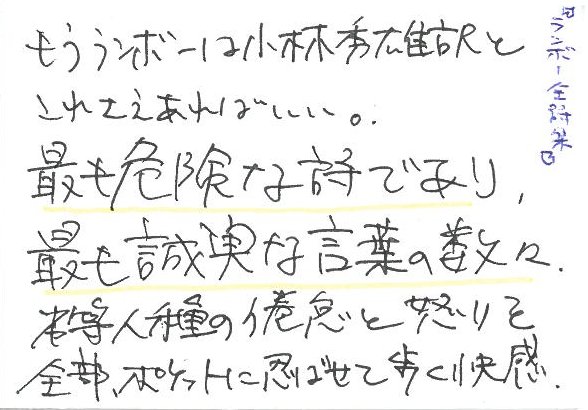 『ランボー全詩集』
もうランボーは小林秀雄訳と
これさえあればいい。
最も危険な詩であり、
最も誠実な言葉の数々.
劣等人種の倦怠と怒りを
全部、ポケットに忍ばせて歩く快感.